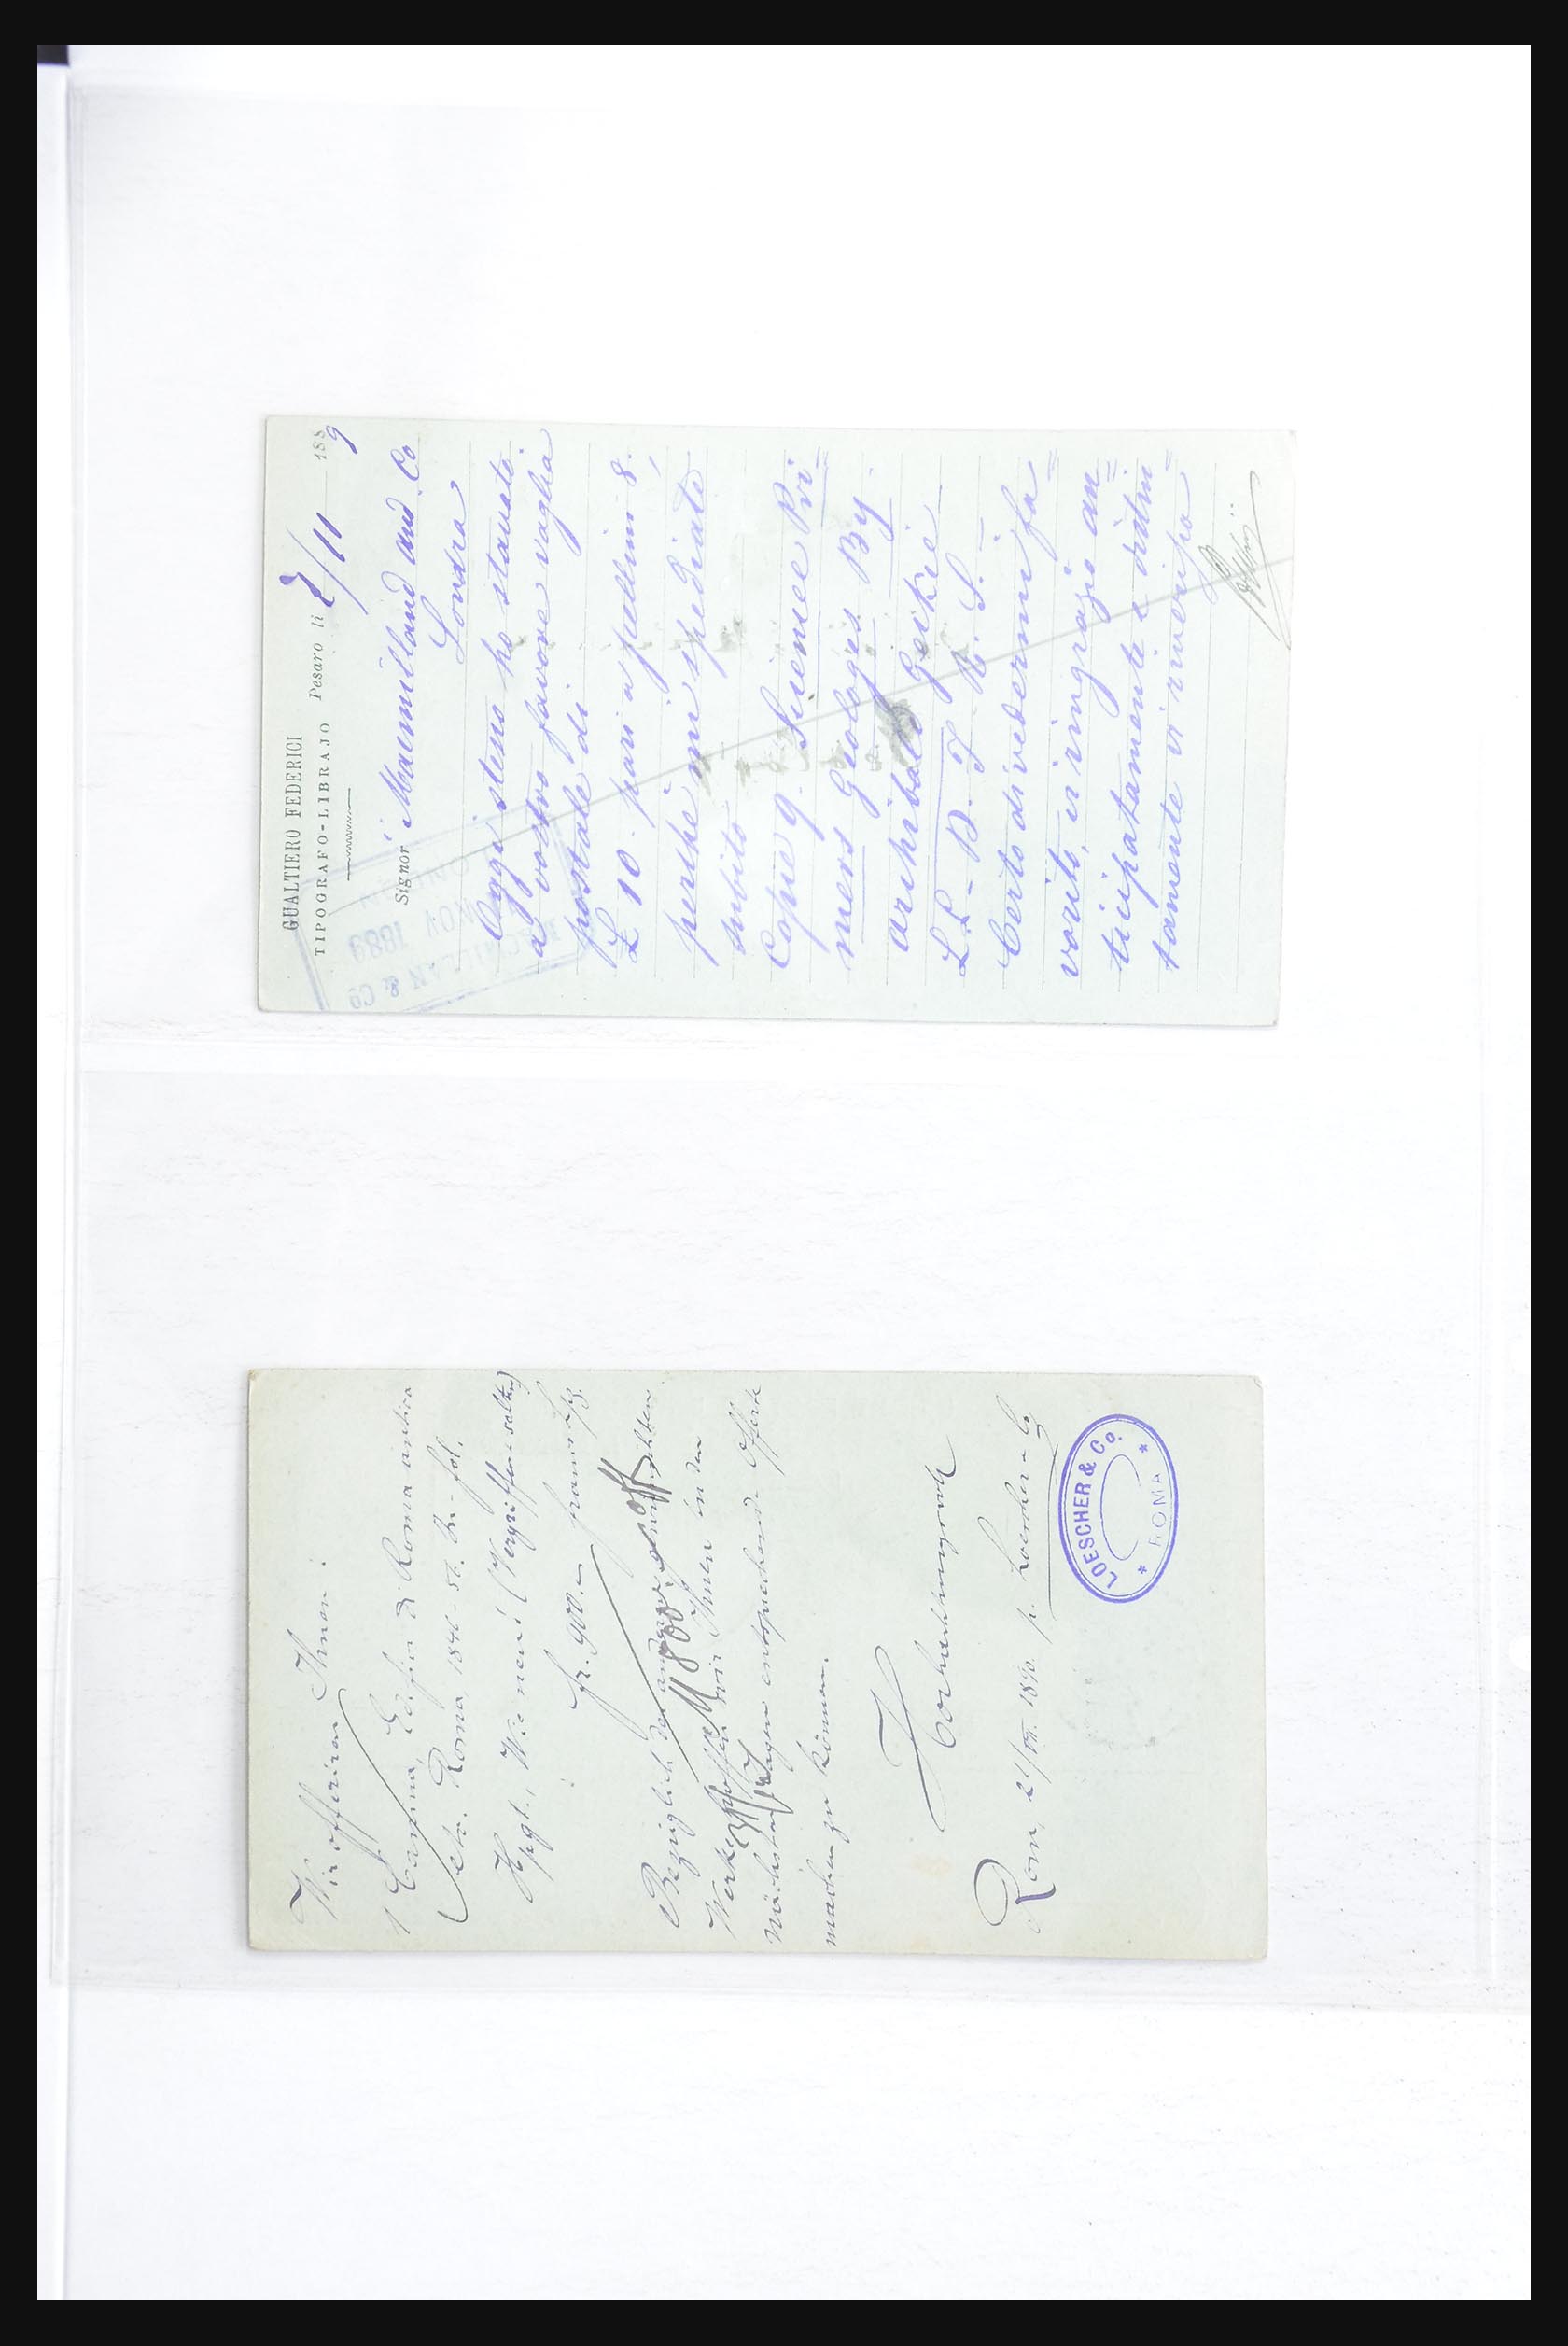 GUALTIERO FEDERICI
TIPOGRAFO-LIBRAJO Pesaro li 2/11 1889
Signor Macmilland and Co
Londra
MACMILLAN & Co
NOV 1889
Oggi stesso ho staccato
a vostro favore vaglia
postale di
£ 10. pari a scellini 8,
perchè mi spediate
subito
Copie 9. Science Pri=
mers Geologis By.
archibald Geikie
LL-D. F. R. S. -
Certo di vedermi fa=
vorito, vi ringrazio an=
ticipatamente e distin=
tamente vi riverisco
Wir offeriren Ihnen:
1 Canina, Edifizi di Roma antica
etc. Roma, 1846-56. In-fol.
Wie neu! (Vergriffen u. selten)
fr. 900.-
Bezüglich der anderen gewünschten
Werke hoffen wir Ihnen in den
nächsten Tagen entsprechende Offerte
machen zu können.
1800
Hochachtungsvoll
Rom, 21/VII. 1890. p. Loescher & Co
LOESCHER & Co.
* ROMA *